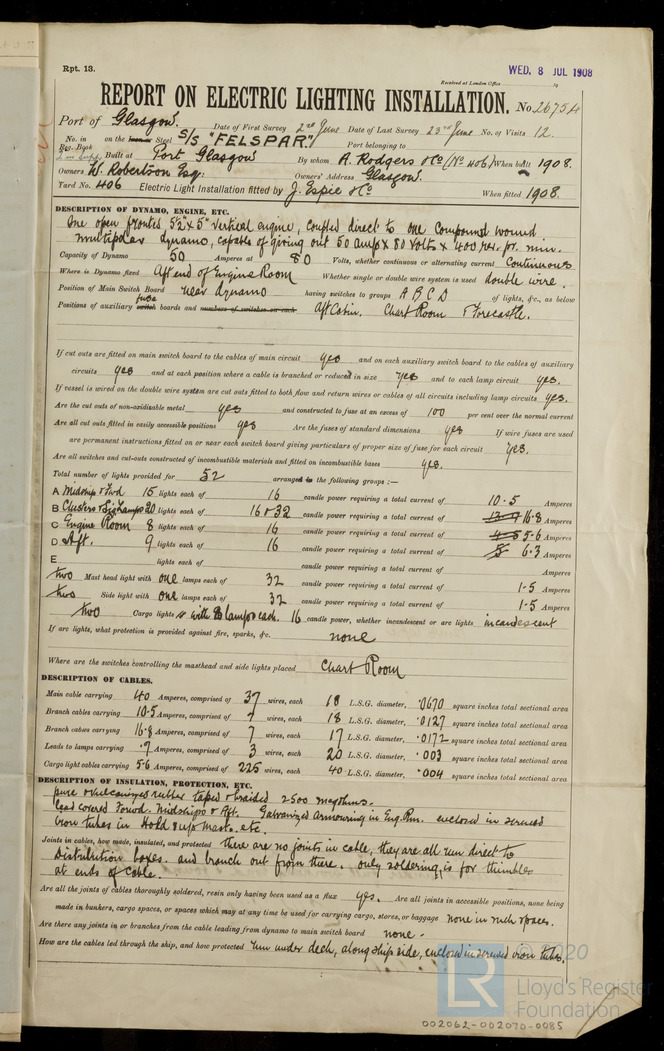 Rpt. 13.
Received at London Office
WED. 8 JUL 1908
19
REPORT ON ELECTRIC LIGHTING INSTALLATION. No. 26754
Port of Glasgow. Date of First Survey 2nd June Date of Last Survey 23rd June No. of Visits 12.
No. in Reg. Book on the Iron or Steel S/S "FELSPAR" Port belonging to
2 in Supp. Built at Port Glasgow By whom A. Rodgers & Co (No 406) When built 1908.
Owners W. Robertson Esq: Owners' Address Glasgow.
Yard No. 406 Electric Light Installation fitted by J. Espie & Co When fitted 1908.
DESCRIPTION OF DYNAMO, ENGINE, ETC.
One open fronted, 5½" x 5" vertical engine, coupled direct to one Compound wound
multipolar dynamo, capable of giving out 50 amps x 80 Volts x 400 revs. pr. min.
Capacity of Dynamo 50 Amperes at 80 Volts, whether continuous or alternating current Continuous
Where is Dynamo fixed Aft end of Engine Room Whether single or double wire system is used double wire.
Position of Main Switch Board near dynamo having switches to groups A B C D of lights, &c., as below
Positions of auxiliary switch fuse boards and numbers of switches on each Aft Cabin. Chart Room & Forecastle.
If cut outs are fitted on main switch board to the cables of main circuit yes and on each auxiliary switch board to the cables of auxiliary
circuits yes and at each position where a cable is branched or reduced in size yes and to each lamp circuit yes.
If vessel is wired on the double wire system are cut outs fitted to both flow and return wires or cables of all circuits including lamp circuits yes.
Are the cut outs of non-oxidizable metal yes and constructed to fuse at an excess of 100 per cent over the normal current
Are all cut outs fitted in easily accessible positions yes Are the fuses of standard dimensions yes If wire fuses are used
are permanent instructions fitted on or near each switch board giving particulars of proper size of fuse for each circuit yes.
Are all switches and cut-outs constructed of incombustible materials and fitted on incombustible bases yes.
Total number of lights provided for 52 arranged in the following groups :—
A Midship & Fwd 15 lights each of 16 candle power requiring a total current of 10.5 Amperes
B Clusters & Sig Lamps 20 lights each of 16 & 32 candle power requiring a total current of 16.8 Amperes
C Engine Room 8 lights each of 16 candle power requiring a total current of 5.6 Amperes
D Aft. 9 lights each of 16 candle power requiring a total current of 6.3 Amperes
E lights each of candle power requiring a total current of Amperes
two Mast head light with one lamps each of 32 candle power requiring a total current of 1.5 Amperes
two Side light with one lamps each of 32 candle power requiring a total current of 1.5 Amperes
two Cargo lights with 8 lamps each. 16 candle power, whether incandescent or arc lights incandescent
If arc lights, what protection is provided against fire, sparks, &c. none
Where are the switches controlling the masthead and side lights placed Chart Room
DESCRIPTION OF CABLES.
Main cable carrying 40 Amperes, comprised of 37 wires, each 18 L.S.G. diameter, .0670 square inches total sectional area
Branch cables carrying 10.5 Amperes, comprised of 7 wires, each 18 L.S.G. diameter, .0127 square inches total sectional area
Branch cables carrying 16.8 Amperes, comprised of 7 wires, each 17 L.S.G. diameter, .0172 square inches total sectional area
Leads to lamps carrying .7 Amperes, comprised of 3 wires, each 20 L.S.G. diameter, .003 square inches total sectional area
Cargo light cables carrying 5.6 Amperes, comprised of 225 wires, each 40 L.S.G. diameter, .004 square inches total sectional area
DESCRIPTION OF INSULATION, PROTECTION, ETC.
pure & vulcanized rubber taped & braided 2500 megohms.
lead covered Forwd. Midships & Aft. Galvanized armouring in Eng. Rm. enclosed in screwed
iron tubes in Hold & up Masts. etc.
Joints in cables, how made, insulated, and protected there are no joints in cable, they are all run direct to
Distribution boxes. and branch out from there. only soldering, is for thimbles
at ends of cable.
Are all the joints of cables thoroughly soldered, resin only having been used as a flux yes. Are all joints in accessible positions, none being
made in bunkers, cargo spaces, or spaces which may at any time be used for carrying cargo, stores, or baggage none in such spaces.
Are there any joints in or branches from the cable leading from dynamo to main switch board none.
How are the cables led through the ship, and how protected run under deck, along ship side, enclosed in screwed iron tubes.
© 2020
LR
Lloyd's Register
Foundation
002062-002070-0085